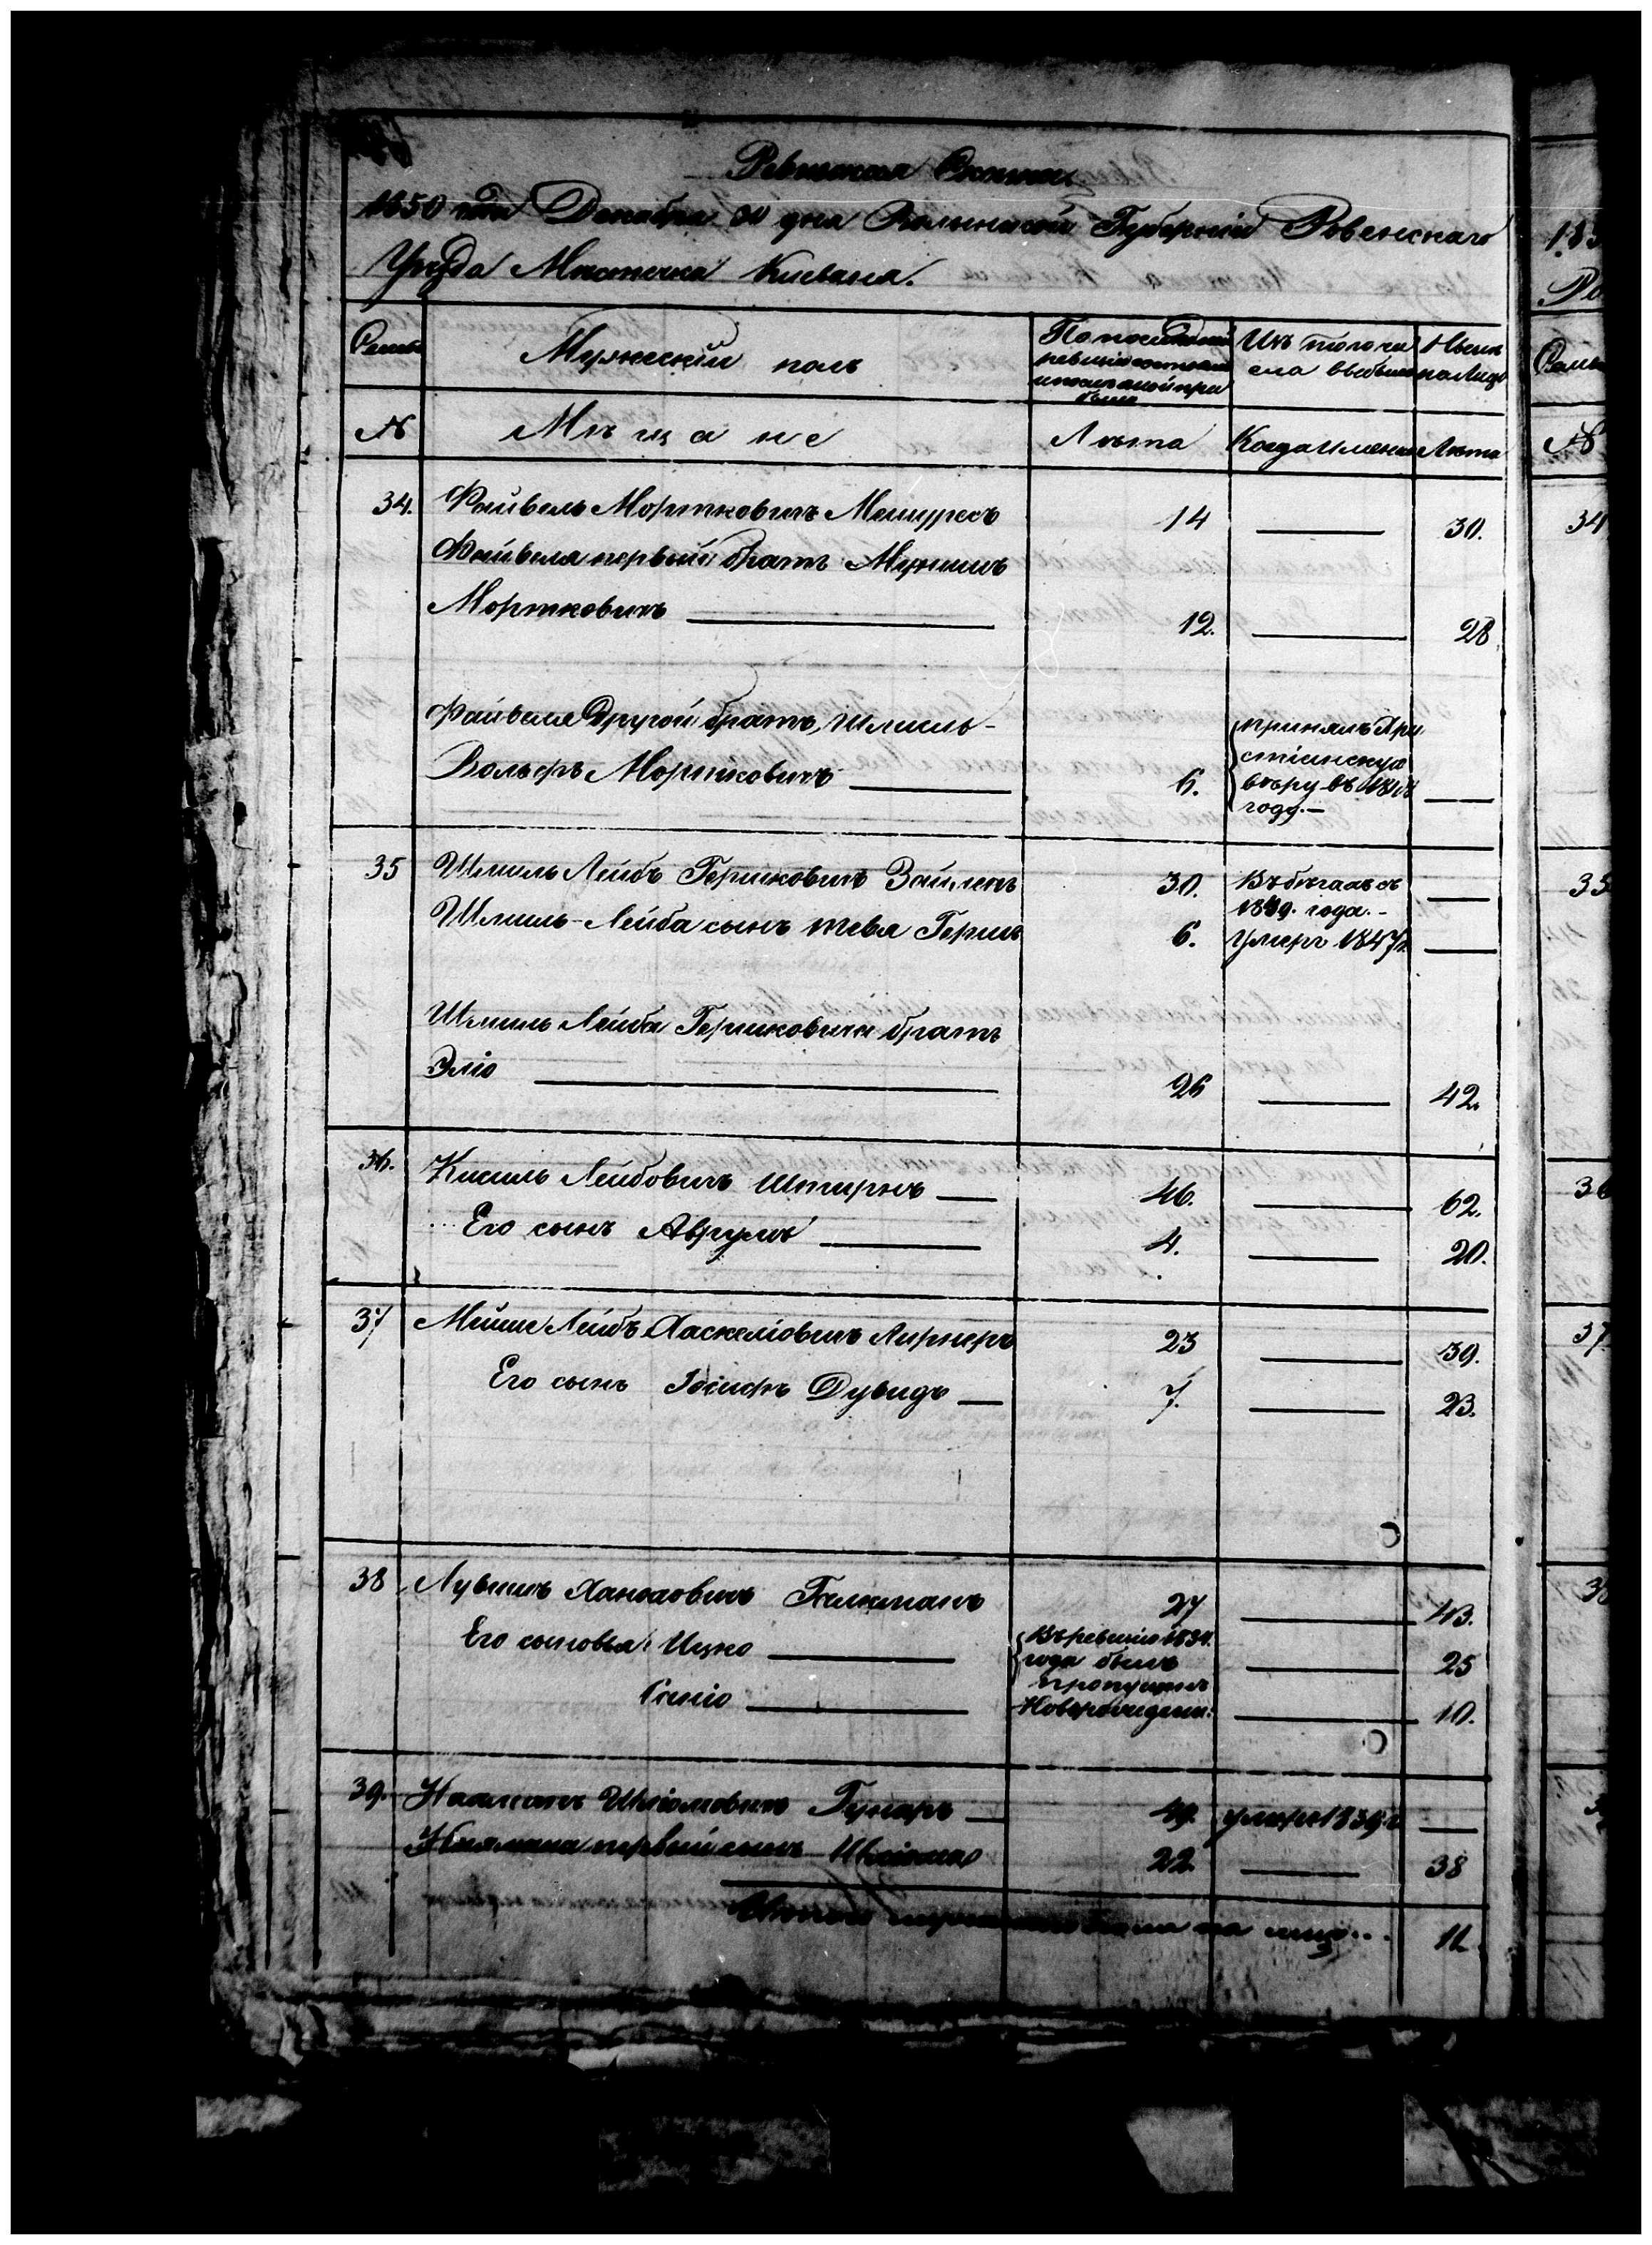 Ревизская Сказка
1850 года Декабря 31 дня Волынской Губерніи Ровенскаго
Уѣзда Мѣстечка Клевана.
Семьи
Мужескій полъ
По последней
ревизіи состояло
и после оной при
было
Изъ того чи
сла выбыло
Ныне
на лицо
№
Мѣщане
Лѣта
Когда именно
Лѣта
34. Файвель Мортковичъ Мешуресъ 14 30.
Файвеля первый братъ Мунишъ
Мортковичъ 12. 28
Файвеля Другой братъ, Шмиль-
Вольфъ Мортковичъ 6.
принялъ Хри
стіанскую
вѣру въ
году.—
35 Шмиль Лейбъ Гершковичъ 30. въ бегахъ съ
1849. года.-
Шмиль-Лейба сынъ Тевя Гершъ 6. умеръ 1847г.
Шмиль Лейба Гершковича братъ
Эліо 26 42.
36. Кисиль Лейбовичъ Штирнъ 46. 62.
Его сынъ Аврумъ 4. 20.
37 Мойше Лейбъ Хаскеліовичъ Лирнеръ 23 39.
Его сынъ Іосифъ Дувидъ 7. 23.
38 Лувишъ Ханоховичъ 27 43.
Его сыновья: Ицко
Въ ревизію 1834.
года былъ
пропущенъ
25
Новорожден. 10.
39. Нахманъ Шліомовичъ 49. умеръ 1839 г
Нахмана первый сынъ Шліома 22. 38
на лицо... 11.
18
Ре
Семьи
№
34
35
36
37.
38